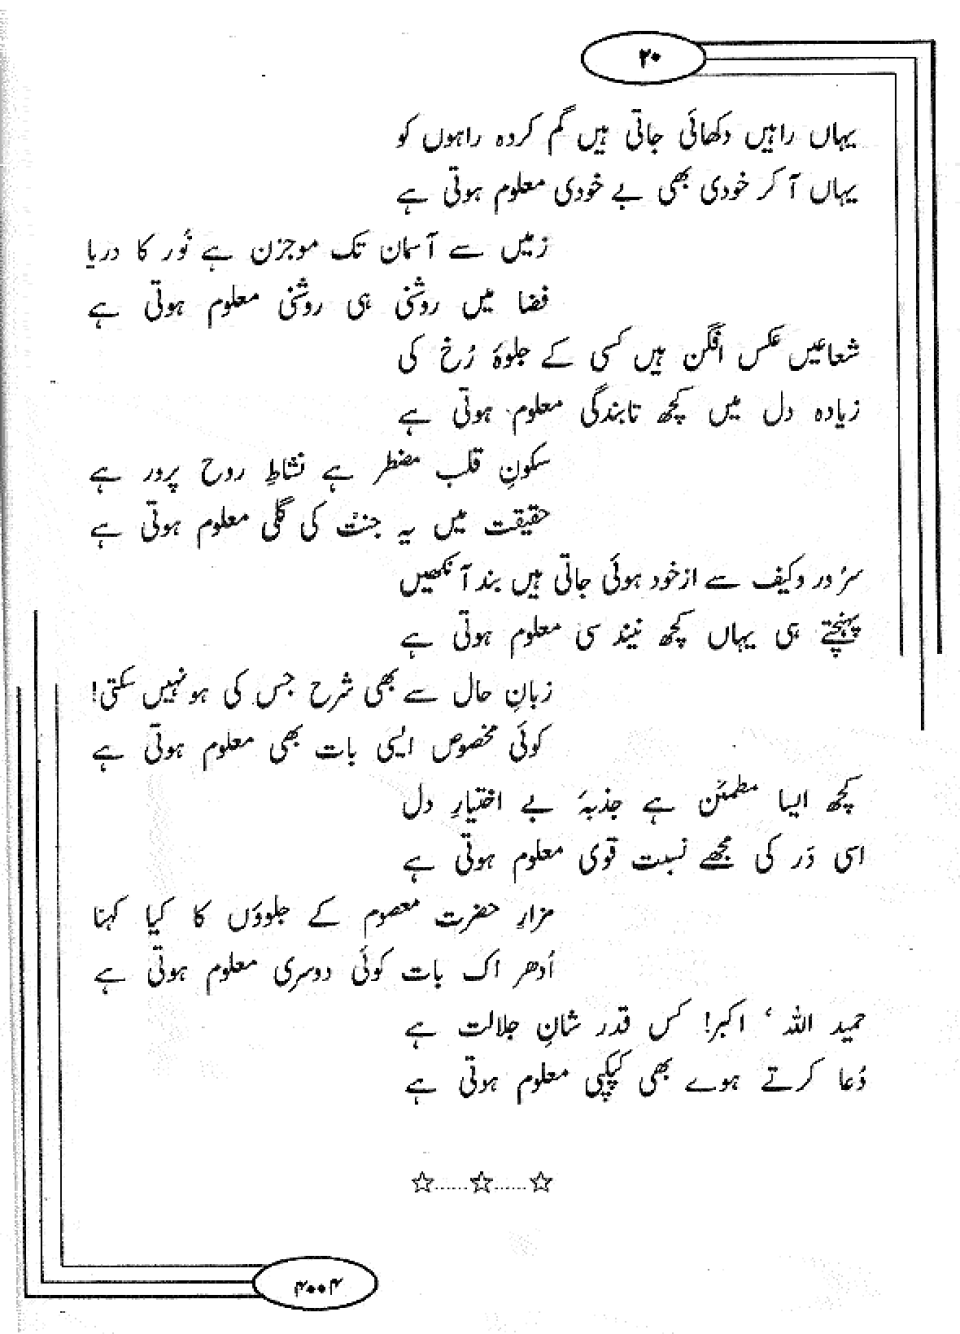 ۲۰
یہاں راہیں دکھائی جاتی ہیں گم کردہ راہوں کو
یہاں آ کر خودی بھی بے خودی معلوم ہوتی ہے
زمیں سے آسمان تک موجزن ہے نُور کا دریا
فضا میں روشنی ہی روشنی معلوم ہوتی ہے
شعاعیں عکس افگن ہیں کسی کے جلوۂ رُخ کی
زیادہ دل میں کچھ تابندگی معلوم ہوتی ہے
سکونِ قلب مضطر ہے نشاطِ روح پرور ہے
حقیقت میں یہ جنّت کی گلی معلوم ہوتی ہے
سرُور وکیف سے ازخود ہوئی جاتی ہیں بند آنکھیں
پہنچتے ہی یہاں کچھ نیند سی معلوم ہوتی ہے
زبانِ حال سے بھی شرح جس کی ہو نہیں سکتی!
کوئی مخصوص ایسی بات بھی معلوم ہوتی ہے
کچھ ایسا مطمئن ہے جذبۂ بے اختیارِ دل
اسی دَر کی مجھے نسبت قوی معلوم ہوتی ہے
مزارِ حضرت معصوم کے جلووَں کا کیا کہنا
اُدھر اک بات کوئی دوسری معلوم ہوتی ہے
حمید اللہ ، اکبر! کس قدر شانِ جلالت ہے
دُعا کرتے ہوے بھی کپکپی معلوم ہوتی ہے
☆......☆......☆
۴۰۰۴